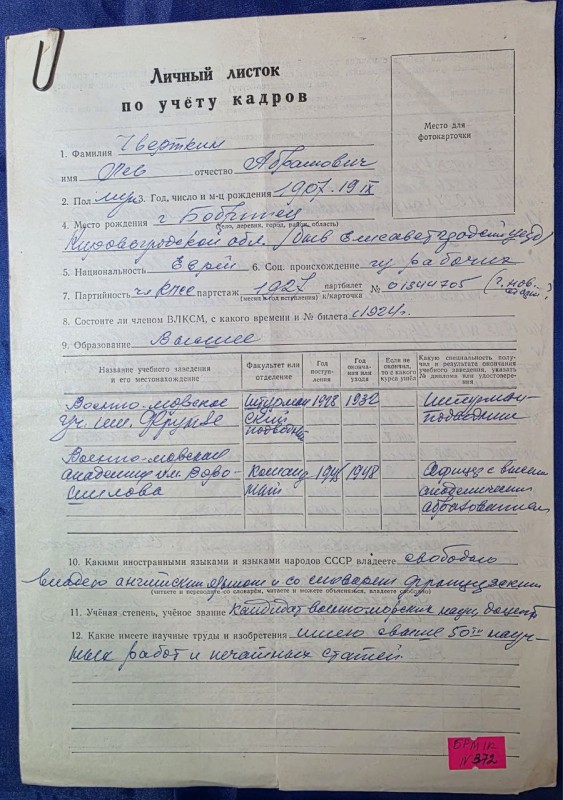 Личный листок
по учёту кадров
Место для
фотокарточки
1. Фамилия Чверткин
имя Лев отчество Абрамович
2. Пол муж 3. Год, число и м-ц рождения 1907. 19 IX
4. Место рождения г. Бобринец
(село, деревня, город, район, область)
Кировоградской обл. (быв Елисаветградский уезд)
5. Национальность Еврей 6. Соц. происхождение из рабочих
7. Партийность чл КПСС партстаж 1927 партбилет № 01344705
(месяц и год вступления) к/карточка
8. Состоите ли членом ВЛКСМ, с какого времени и № билета с 1924г.
9. Образование Высшее
Название учебного заведения и его местонахождение
Факультет или отделение
Год поступления
Год окончания или ухода
Если не окончил, то с какого курса ушёл
Какую специальность получил в результате окончания учебного заведения, указать № диплома или удостоверения
Военно-морское Штурман 1928 1932 Штурман-
уч. им. Фрунзе ский подводник
подводный
Военно-морская
академия им. Воро- Команд 1948 Офицер с высшим
шилова ный академическим
образованием
10. Какими иностранными языками и языками народов СССР владеете свободно
владею английским языком и со словарем французским
(читаете и переводите со словарём, читаете и можете объясняться, владеете свободно)
11. Учёная степень, учёное звание Кандидат военно-морских наук, доцент
12. Какие имеете научные труды и изобретения имею свыше 50ти науч-
ных работ и печатных статей.
БРМ1К
N 372